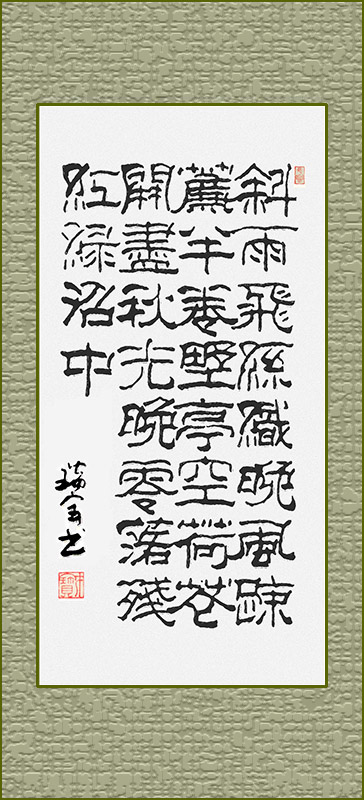 斜雨飛絲織晚風疎
簾半卷野亭空荷花
開盡秋光晚零落殘
紅綠沼中
瑞宝书